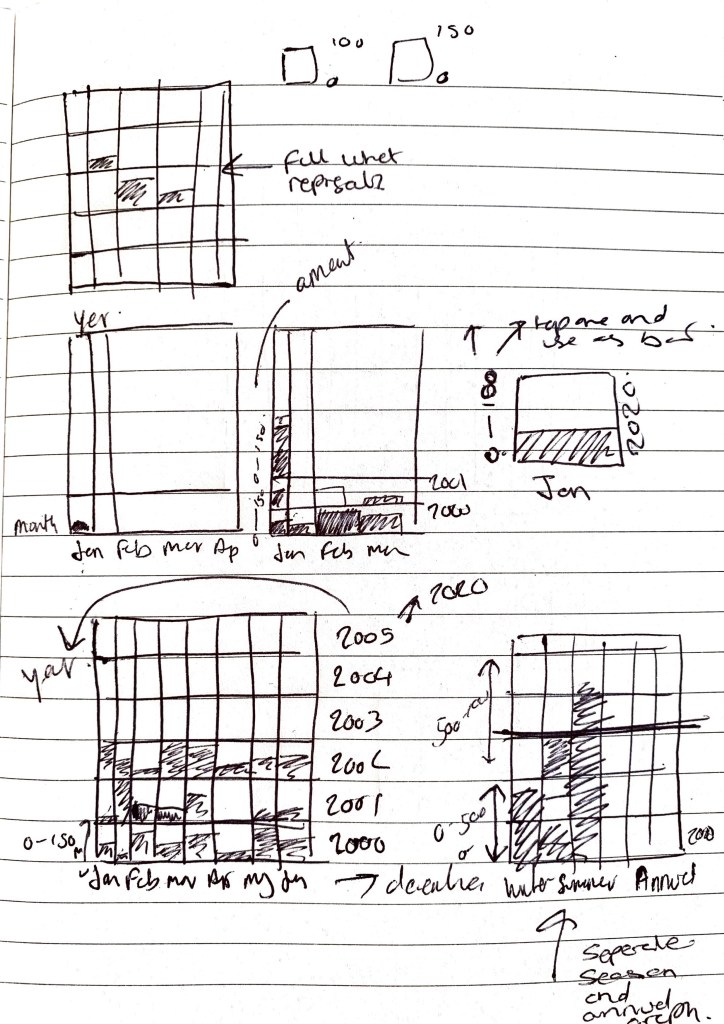 100
150
0
0
Full what
yer.
ament
use as bar
0 — 100
2020
Jan
0 — 150
0 — 150
2001
2000
month
Jan Feb mar Ap
Jan Feb mar
2020
year.
2005
2004
2003
2002
2001
2000
0-150
Jan Feb mar Apr my Jun
→ december
500
0-500
0
2000
winter summer Annual
Seperate
season
and
annual
graph.